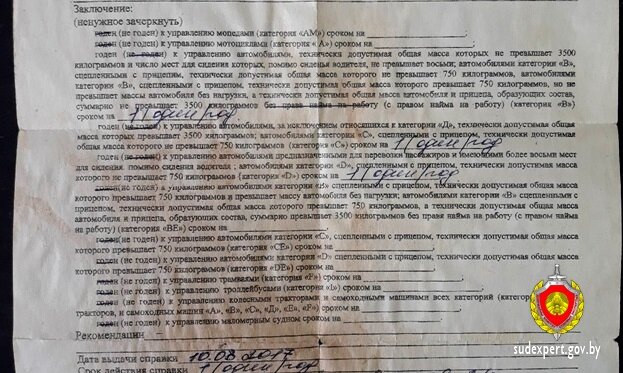 Заключение:
(ненужное зачеркнуть)
годен (не годен) к управлению мопедами (категория «АМ») сроком на
годен (не годен) к управлению мотоциклами (категория « А») сроком на
годен (не годен) к управлению автомобилями, технически допустимая общая масса которых не превышает 3500
килограммов и число мест для сидения которых, помимо сиденья водителя, не превышает восьми; автомобилями категории «В»,
сцепленными с прицепом, технически допустимая общая масса которого не превышает 750 килограммов, автомобилями
категории «В», сцепленными с прицепом, технически допустимая общая масса которого превышает 750 килограммов, но не
превышает массы автомобиля без нагрузки, а технически допустимая общая масса автомобиля и прицепа, образующих состав,
суммарно не превышает 3500 килограммов без права найма на работу (с правом найма на работу) (категория «В»)
сроком на 1 /один/ год
годен (не годен) к управлению автомобилями, за исключением относящихся к категории «Д», технически допустимая общая
масса которых превышает 3500 килограммов; автомобилями категории «С», сцепленными с прицепом, технически допустимая
общая масса которого не превышает 750 килограммов (категория «С») сроком на 1 /один/ год
годен (не годен) к управлению автомобилями предназначенными для перевозки пассажиров и имеющими более восьми мест
для сидения, помимо сидения водителя ; автомобилями категории «D», сцепленными с прицепом, технически допустимая масса
которого не превышает 750 килограммов (категория «D») сроком на 1 /один/ год
годен (не годен) к управлению автомобилями категории «В» сцепленными с прицепом, технически допустимая общая масса
которого превышает 750 килограммов и превышает массу автомобиля без нагрузки; автомобилями категории «В» сцепленными с
прицепом, технически допустимая общая масса которого превышает 750 килограммов, а технически допустимая общая масса
автомобиля и прицепа, обратующих состав, суммарно превышает 3500 килограммов без права найма на работу (с правом найма
на работу) (категория "ВЕ») сроком на
годен(не годен) к управлению автомобилями категории «С», сцепленными с прицепом, технически допустимая общая масса
которого превышает 750 килограммов (категория «СЕ») сроком на
годен (не годен) к управлению автомобилями категории «D» сцепленными с прицепом, технически допустимая общая масса
которого превышает 750 килограммов (категория «DE») сроком на
годен (не годен) к управлению трамваями (категория «F») сроком на
годен (не годен) к управлению троллейбусами (категория «I») сроком на
годен (не годен) к управлению колесными тракторами и самоходными машинами всех категорий (категории
тракторов, и самоходных машин «А», «В», «С», «Д», «Е», «F») сроком на
годен (не годен) к управлению маломерным судном сроком на
Рекомендации
Дата выдачи справки 10.08.2017
Срок действия справки 1 /один/ год
sudexpert.gov.by